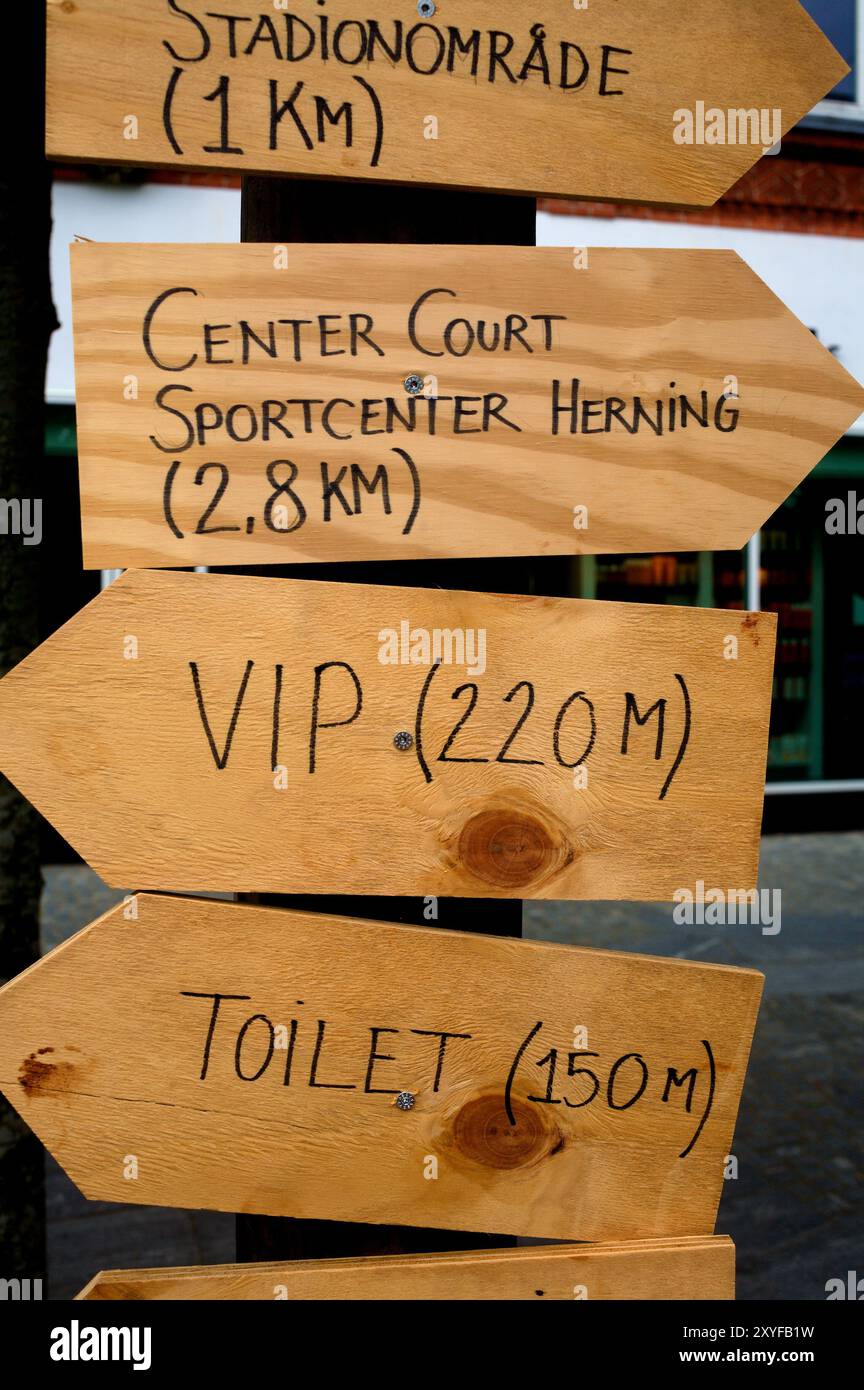 STADIONOMRÅDE
(1 KM)
CENTER COURT
SPORTCENTER HERNING
(2,8 KM)
VIP (220 M)
TOILET (150 M)
alamy
Image ID: 2XYFB1W
www.alamy.com